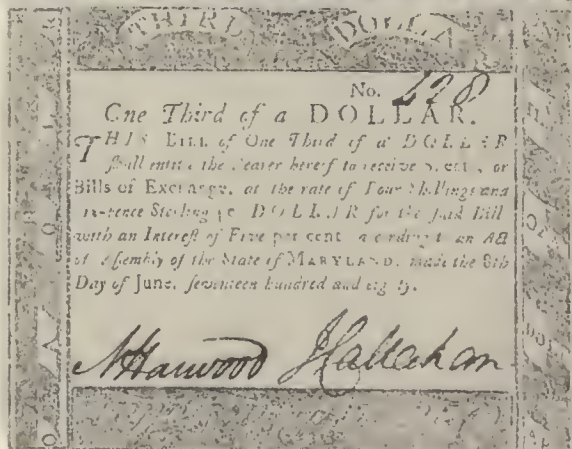 THIRD DOLLA
No. 428
One Third of a DOLLAR.
THIS BILL of One Third of a DOLLAR
ſhall entitle the Bearer hereof to receive or
Bills of Exchange, at the rate of Four Shillings and
ſix-pence Sterling pr DOLLAR for the ſaid Bill
with an Intereſt of Five per cent according to an Act
of Aſſembly of the State of MARYLAND, made the 8th
Day of June, ſeventeen hundred and eighty.
NHarwood JCallahan